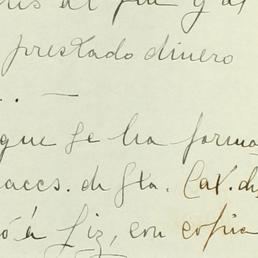 al fin y al
prestado dinero
.. —
que se ha forma
accs. de Gta.
ó á Liz, con copia